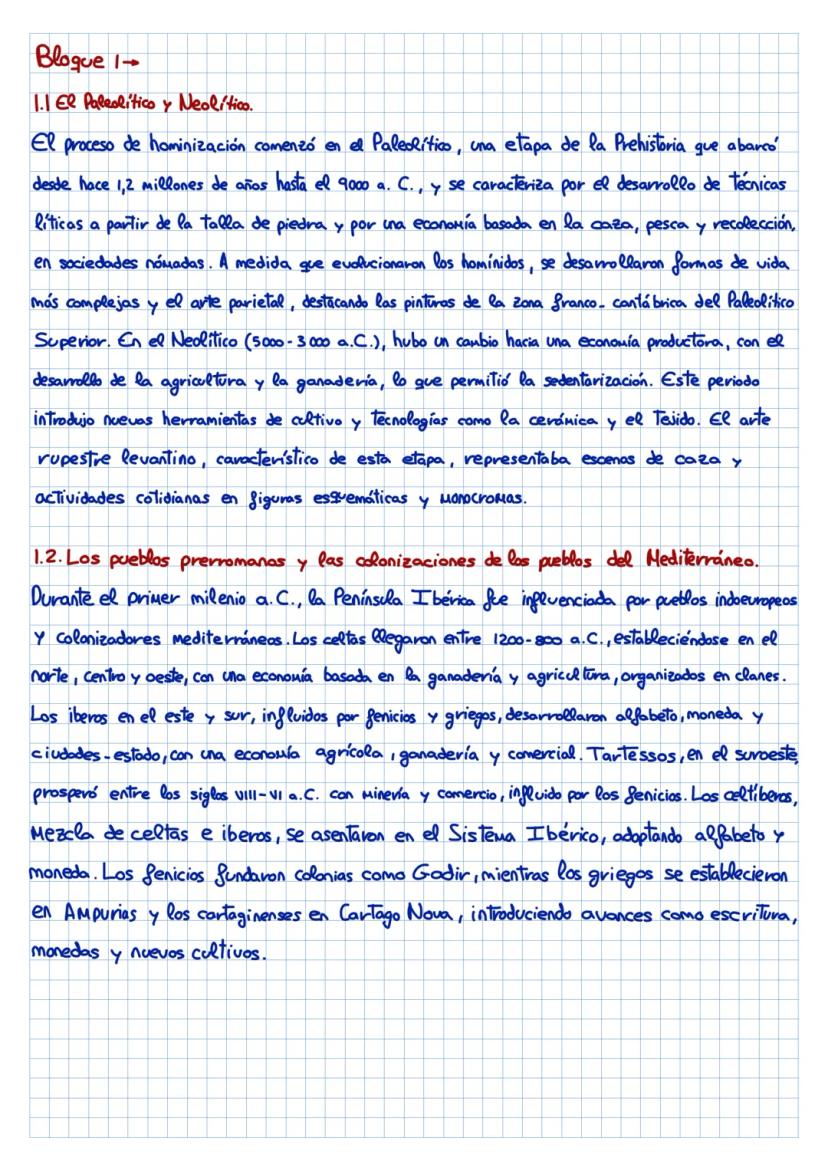 Bloque 1→
1.1 El Paleolítico y Neolítico.
El proceso de hominización comenzó en el Paleolítico, una etapa de la Prehistoria que abarcó
desde hace 1,2 millones de años hasta el 9000 a. C., y se caracteriza por el desarrollo de técnicas
líticas a partir de la talla de piedra y por una economía basada en la caza, pesca y recolección,
en sociedades nómadas. A medida que evolucionaron los homínidos, se desarrollaron formas de vida
más complejas y el arte parietal, destacando las pinturas de la zona franco-cantábrica del Paleolítico
Superior. En el Neolítico (5000-3000 a.C.), hubo un cambio hacia una economía productora, con el
desarrollo de la agricultura y la ganadería, lo que permitió la sedentarización. Este periodo
introdujo nuevas herramientas de cultivo y tecnologías como la cerámica y el Tejido. El arte
rupestre levantino, característico de esta etapa, representaba escenas de caza y
actividades cotidianas en figuras esquemáticas y monocromas.
1.2. Los pueblos prerromanos y las colonizaciones de los pueblos del Mediterráneo.
Durante el primer milenio a.C., la Península Ibérica fue influenciada por pueblos indoeuropeos
y colonizadores mediterráneos. Los celtas llegaron entre 1200-800 a.C., estableciéndose en el
norte, centro y oeste, con una economía basada en la ganadería y agricultura, organizados en clanes.
Los iberos en el este y sur, influidos por fenicios y griegos, desarrollaron alfabeto, moneda y
ciudades-estado, con una economía agrícola, ganadería y comercial. Tartessos, en el suroeste,
prosperó entre los siglos VIII-VI a.C. con minería y comercio, influido por los fenicios. Los celtíberos,
mezcla de celtas e iberos, se asentaron en el Sistema Ibérico, adoptando alfabeto y
moneda. Los fenicios fundaron colonias como Gadir, mientras los griegos se establecieron
en Ampurias y los cartaginenses en Cartago Nova, introduciendo avances como escritura,
monedas y nuevos cultivos.